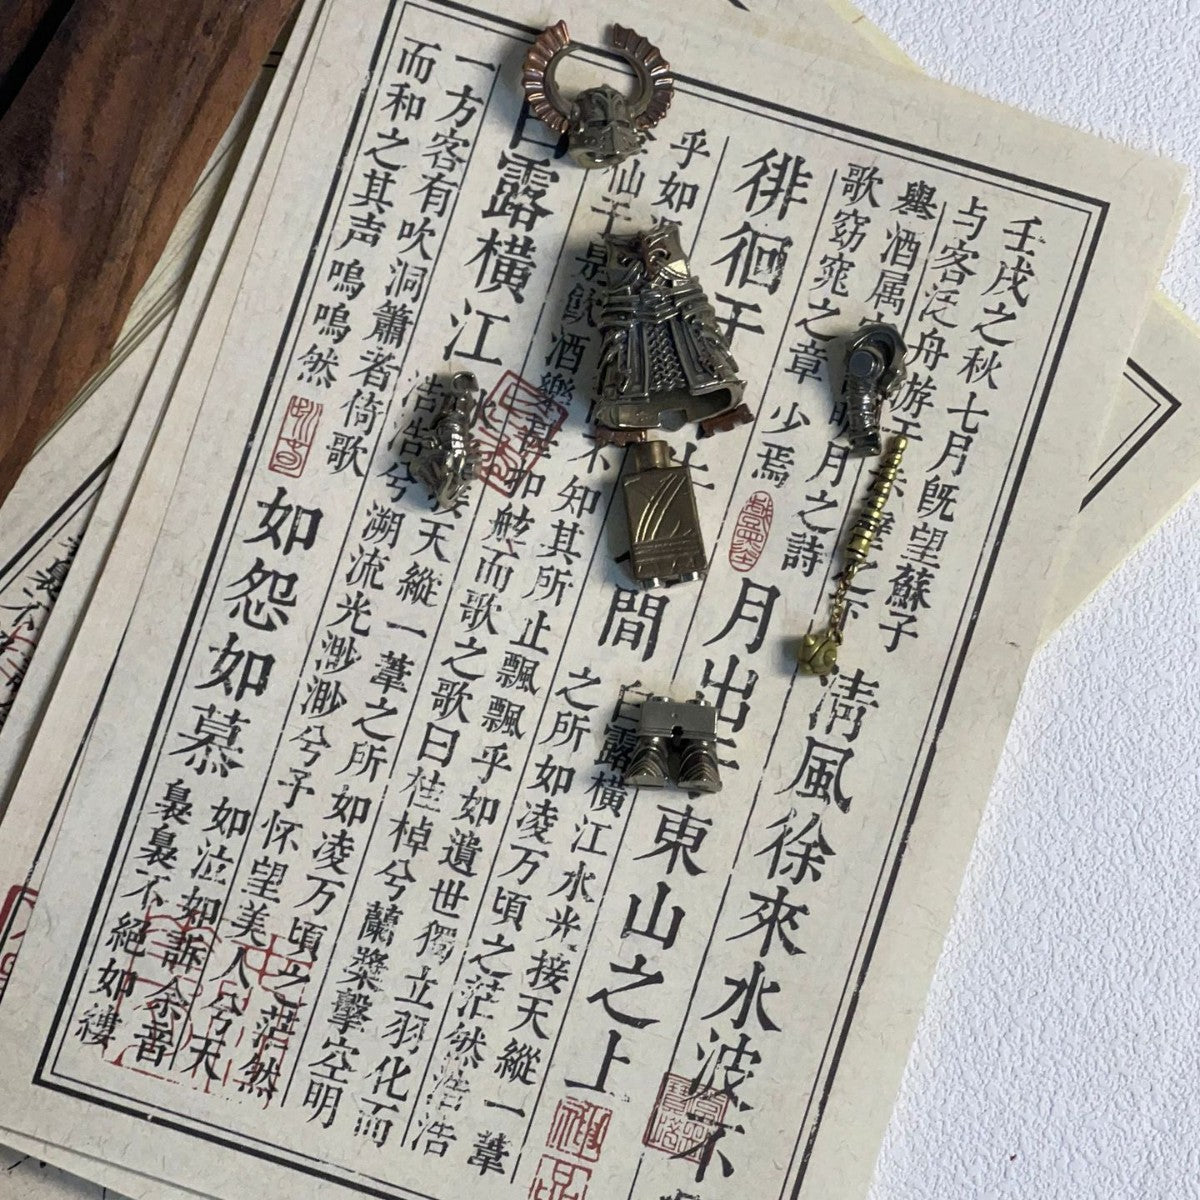 壬戌之秋七月既望蘇子
与客泛舟游于壁之下
清風徐來水波不
舉酒属明月之詩
歌窈窕之章少焉
月出東山之上
徘徊于間
白露橫江水光接天縱一葦
之所如凌万頃之茫然浩浩
乎如不知其所止飄飄乎如遺世獨立羽化而
仙于是飲酒樂甚扣舷而歌之歌曰桂棹兮蘭槳擊空明
白露橫江
水接天縱一葦之所如凌万頃之茫然
浩浩兮溯流光渺渺兮予怀望美人兮天
一方客有吹洞簫者倚歌
而和之其声嗚嗚然
如怨如慕
如泣如訴余音
裊裊不絕如縷